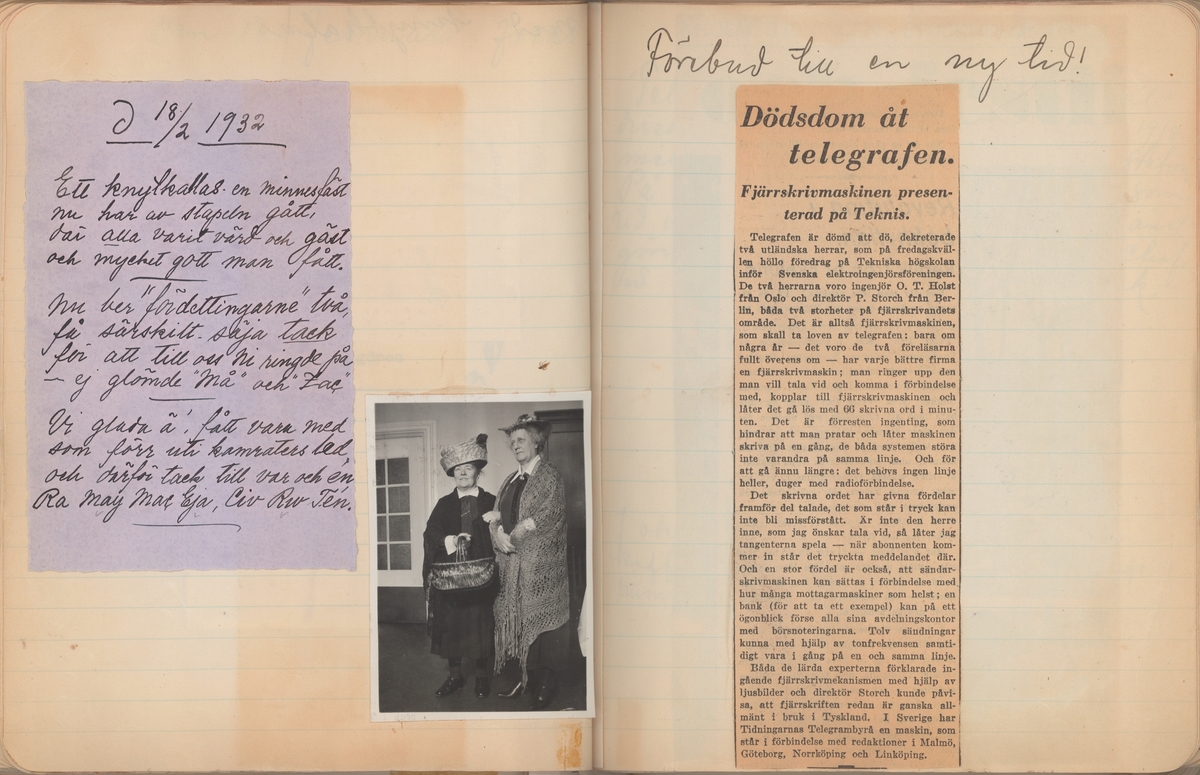 D 18/2 1932
Ett knytkallas- en minnesfäst
nu har av stapeln gått,
där alla varit värd och gäst
och mycket gott man fått.
Nu ber "fördettingarne" två,
få särskilt säja tack
för att till oss Ni ringde på
— ej glömde "Må" och "Zac"
Vi glada ä', fått vara med
som förr uti kamraters led,
och därför tack till var och én
Ra May Mac Eja, Civ Rw Tén.
Förebud till en ny tid!
Dödsdom åt
telegrafen.
Fjärrskrivmaskinen presen-
terad på Teknis.
Telegrafen är dömd att dö, dekreterade
två utländska herrar, som på fredagskväl-
len höllo föredrag på Tekniska högskolan
inför Svenska elektroingenjörsföreningen.
De två herrarna voro ingenjör O. T. Holst
från Oslo och direktör P. Storch från Ber-
lin, båda två storheter på fjärrskrivandets
område. Det är alltså fjärrskrivmaskinen,
som skall ta loven av telegrafen: bara om
några år — det voro de två föreläsarna
fullt överens om — har varje bättre firma
en fjärrskrivmaskin; man ringer upp den
man vill tala vid och komma i förbindelse
med, kopplar till fjärrskrivmaskinen och
låter det gå lös med 66 skrivna ord i minu-
ten. Det är förresten ingenting, som
hindrar att man pratar och låter maskinen
skriva på en gång, de båda systemen störa
inte varandra på samma linje. Och för
att gå ännu längre: det behövs ingen linje
heller, duger med radioförbindelse.
Det skrivna ordet har givna fördelar
framför del talade, det som står i tryck kan
inte bli missförstått. Är inte den herre
inne, som jag önskar tala vid, så låter jag
tangenterna spela — när abonnenten kom-
mer in står det tryckta meddelandet där.
Och en stor fördel är också, att sändar-
skrivmaskinen kan sättas i förbindelse med
hur många mottagarmaskiner som helst; en
bank (för att ta ett exempel) kan på ett
ögonblick förse alla sina avdelningskontor
med börsnoteringarna. Tolv sändningar
kunna med hjälp av tonfrekvensen samti-
digt vara i gång på en och samma linje.
Båda de lärda experterna förklarade in-
gående fjärrskrivmekanismen med hjälp av
ljusbilder och direktör Storch kunde påvi-
sa, att fjärrskriften redan är ganska all-
mänt i bruk i Tyskland. I Sverige har
Tidningarnas Telegrambyrå en maskin, som
står i förbindelse med redaktioner i Malmö,
Göteborg, Norrköping och Linköping.